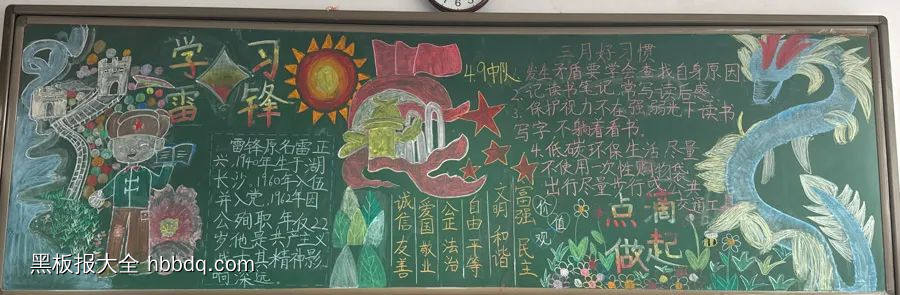 学习
雷锋
雷锋原名雷正
兴1940年生于湖
长沙,1960年入伍
并入党,1962年因
公殉职,年仅22
岁他是共产主义
战士其精神影
响深远。
49中队
三月好习惯
1.发生矛盾要学会查找自身原因
2.记读书笔记,常写读后感
3.保护视力不在强弱光下读书
写字,不躺着看书.
4.低碳环保生活,尽量
不使用一次性购物袋
出行尽量步行或公共
交通工具
富强 民主
文明 和谐
自由 平等
公正 法治
爱国 敬业
诚信 友善
价值观
点滴
做起
黑板报大全 hbbdq.com